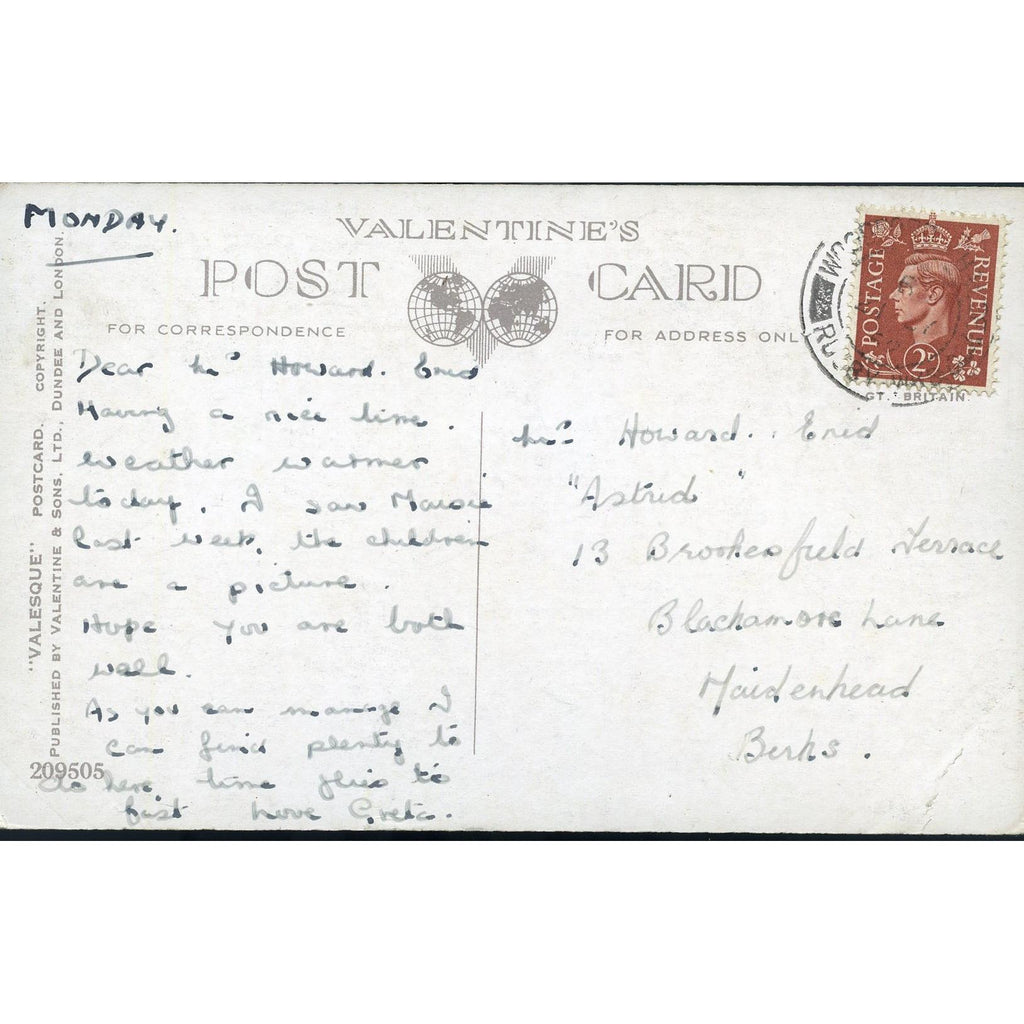 MONDAY.
VALENTINE'S
POST CARD
FOR CORRESPONDENCE
FOR ADDRESS ONLY
"VALESQUE" POSTCARD. COPYRIGHT.
PUBLISHED BY VALENTINE & SONS, LTD., DUNDEE AND LONDON.
209505
Dear Mrs Howard. Enid
Having a nice time.
Weather warmer
today. I saw Maisie
last week, the children
are a picture.
Hope you are both
well.
As you can manage I
can find plenty to
do here. time flies to
fast Love Greta.
POSTAGE REVENUE
2D
GT. BRITAIN.
Mrs Howard. Enid
"Astrid"
13 Brookesfield Terrace
Blackamore Lane
Maidenhead
Berks.